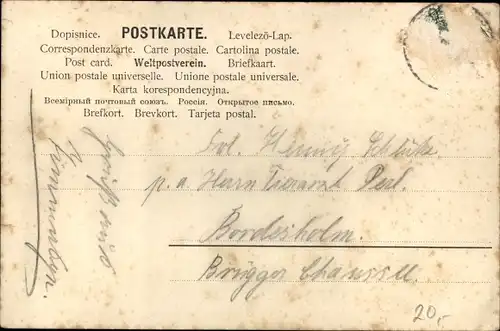 Dopisnice. POSTKARTE. Levelező-Lap.
Correspondenzkarte. Carte postale. Cartolina postale.
Post card. Weltpostverein. Briefkaart.
Union postale universelle. Unione postale universale.
Karta korespondencyjna.
Всемірный почтовый союзъ. Россія. Открытое письмо.
Brefkort. Brevkort. Tarjeta postal.
p. a. Herrn
Bordesholm.
Brügger Chaussee.
20,-